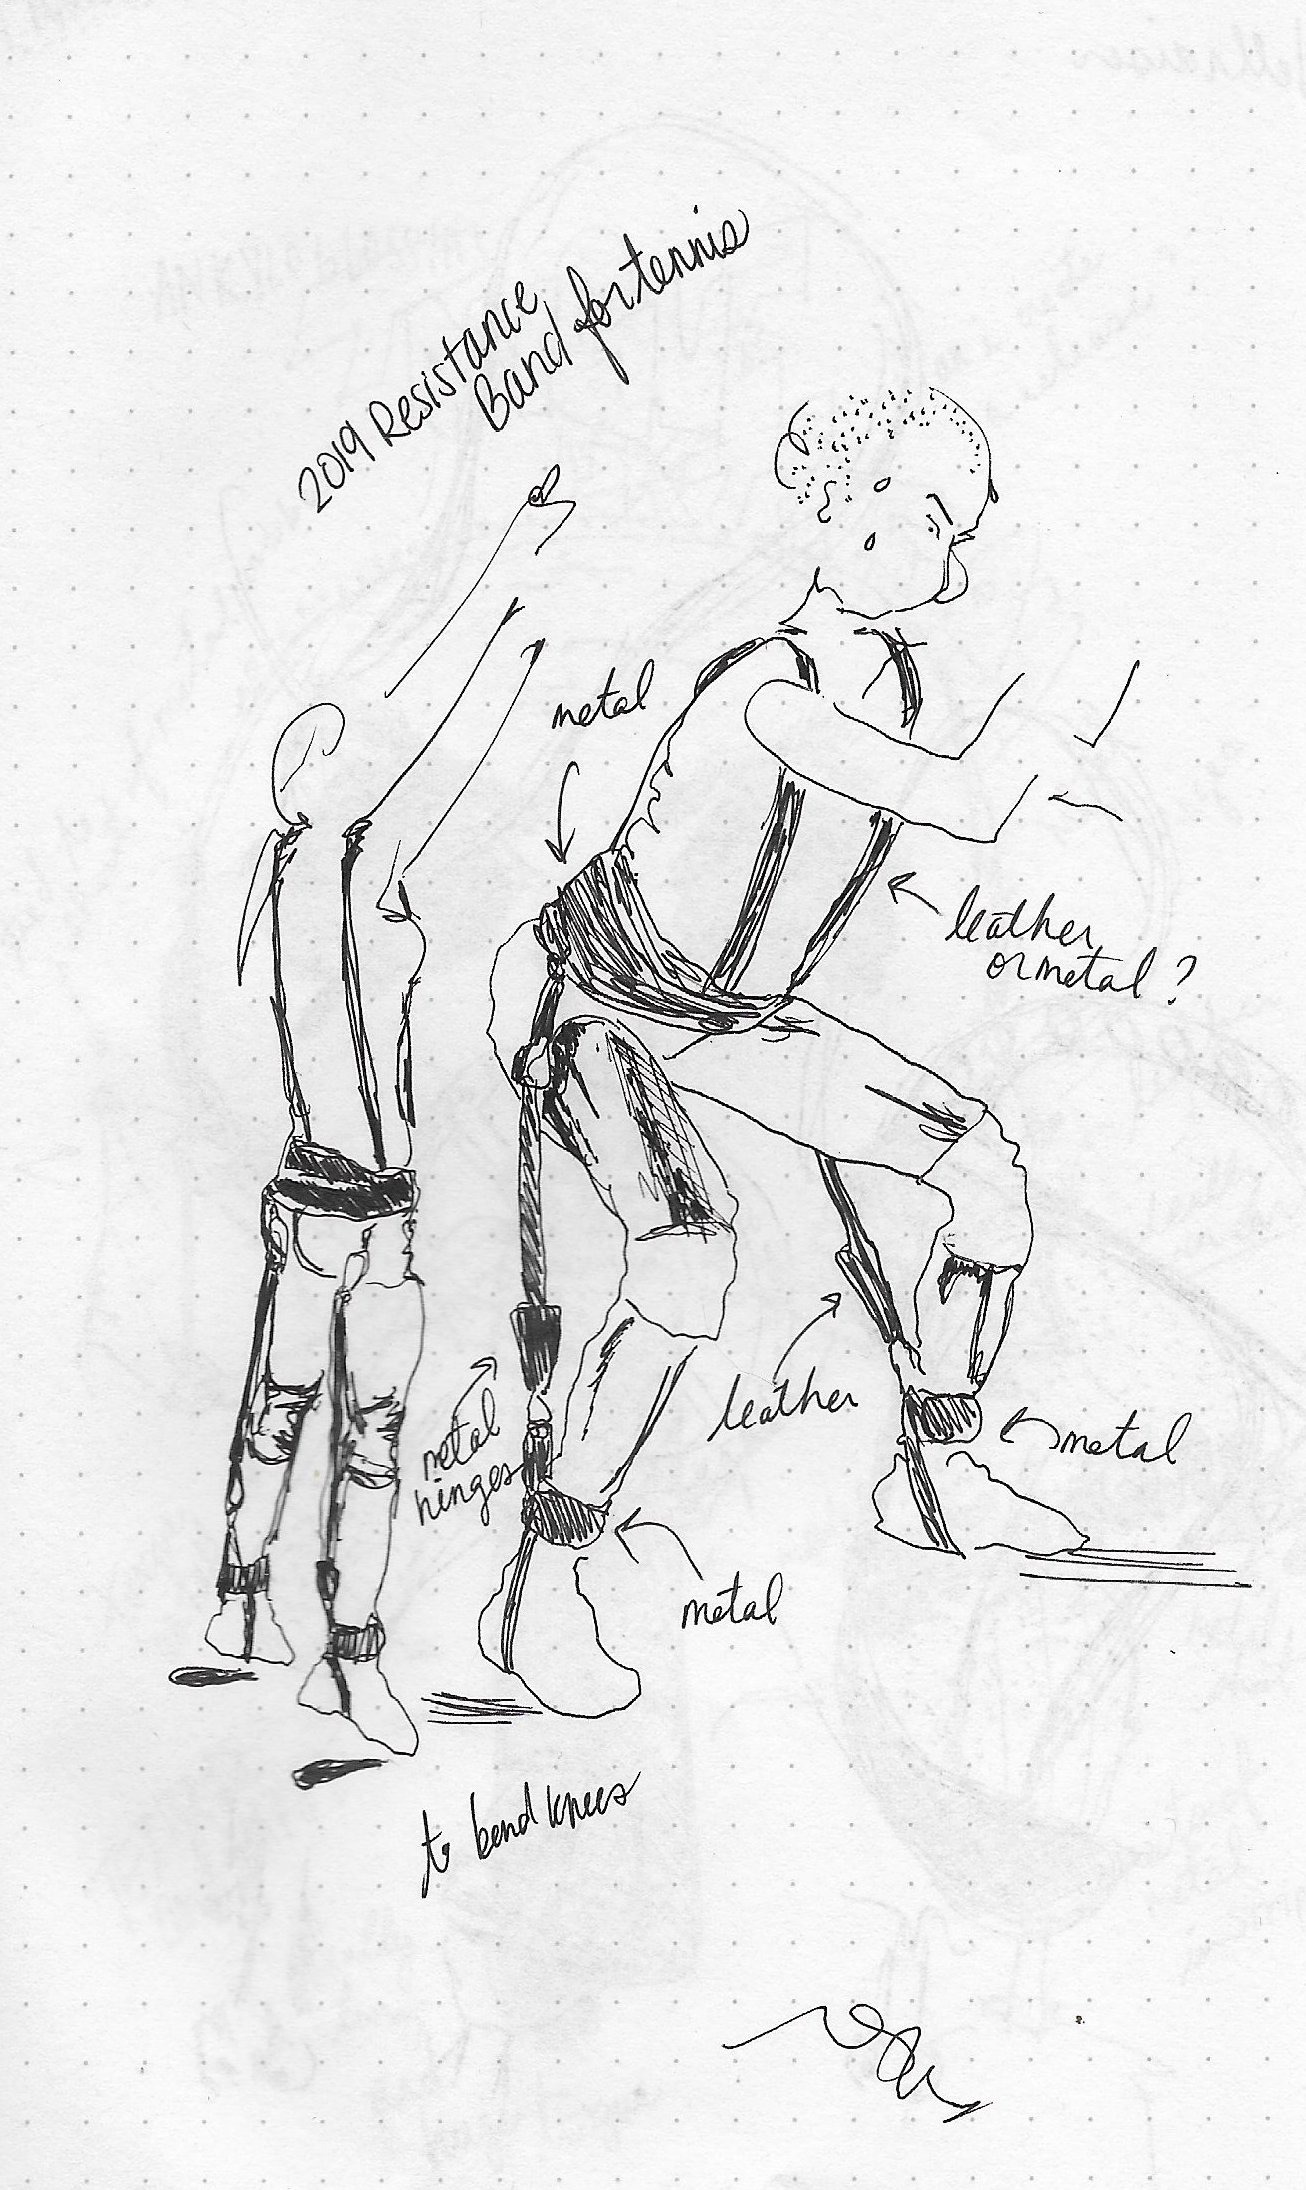 2019 Resistance
Band for tennis
metal
leather
or metal ?
metal
hinges
leather
metal
metal
to bend knees